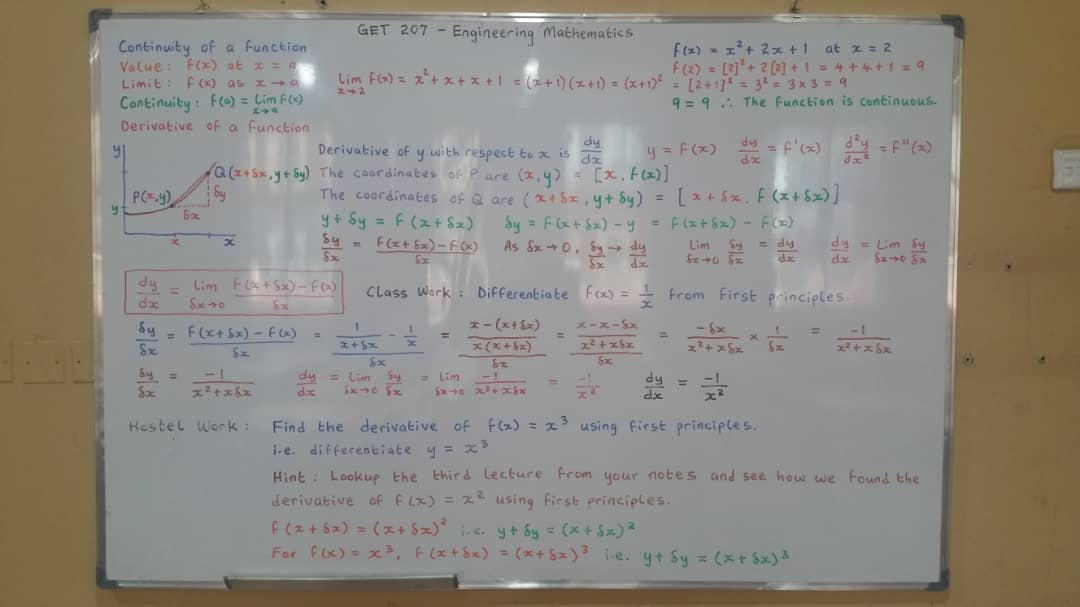 GET 207 - Engineering Mathematics
Continuity of a function
Value : f(x) at x = a
Limit : f(x) as x → a
Continuity : f(a) = Lim f(x)
x→a
Lim f(x) = x² + x + x + 1 = (x+1)(x+1) = (x+1)²
x→2
f(x) = x² + 2x + 1 at x = 2
f(2) = [2]² + 2[2] + 1 = 4 + 4 + 1 = 9
= [2+1]² = 3² = 3 x 3 = 9
9 = 9 ∴ The function is continuous.
Derivative of a function
y
Q(x+δx, y+δy)
P(x,y)
δy
y
δx
x
x
Derivative of y with respect to x is dy/dx y = f(x) dy/dx = f'(x) d²y/dx² = f"(x)
The coordinates of P are (x,y) = [x, f(x)]
The coordinates of Q are (x+δx, y+δy) = [x+δx, f(x+δx)]
y + δy = f(x+δx) δy = f(x+δx) - y = f(x+δx) - f(x)
δy/δx = f(x+δx)-f(x)/δx As δx→0, δy/δx → dy/dx Lim δx→0 δy/δx = dy/dx dy/dx = Lim δx→0 δy/δx
dy/dx = Lim δx→0 f(x+δx)-f(x)/δx
Class Work : Differentiate f(x) = 1/x from first principles.
δy/δx = f(x+δx)-f(x)/δx = (1/x+δx - 1/x)/δx = (x-(x+δx)/x(x+δx))/δx = (x-x-δx/x²+xδx)/δx = -δx/x²+xδx × 1/δx = -1/x²+xδx
δy/δx = -1/x²+xδx dy/dx = Lim δx→0 δy/δx = Lim δx→0 -1/x²+xδx = -1/x² dy/dx = -1/x²
Hostel Work : Find the derivative of f(x) = x³ using first principles.
i.e. differentiate y = x³
Hint : Lookup the third lecture from your notes and see how we found the
derivative of f(x) = x² using first principles.
f(x+δx) = (x+δx)² i.e. y+δy = (x+δx)²
For f(x) = x³, f(x+δx) = (x+δx)³ i.e. y+δy = (x+δx)³